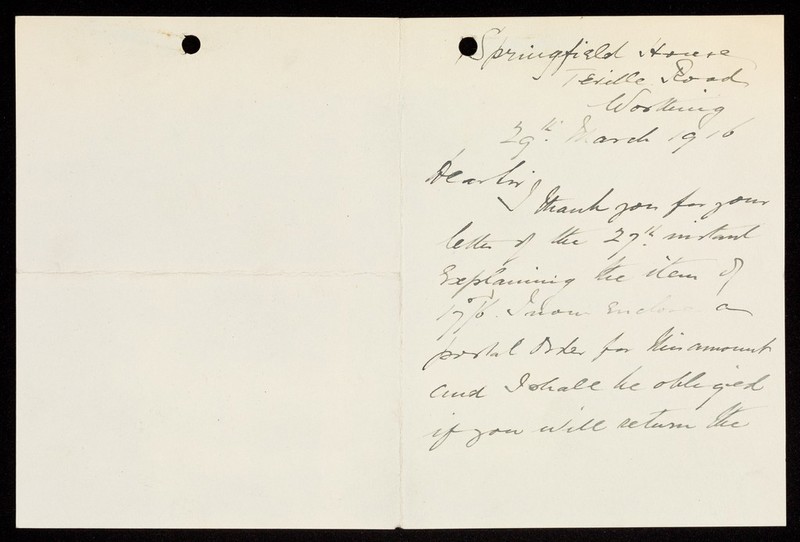 Springfield House
Teville Road
Worthing
29th. March 1916
Dear Sir,
Thank you for your
letter of the 27th. instant
Explaining the item of
17/6. I now Enclose a
postal Order for this amount
and I shall be obliged
if you will return the